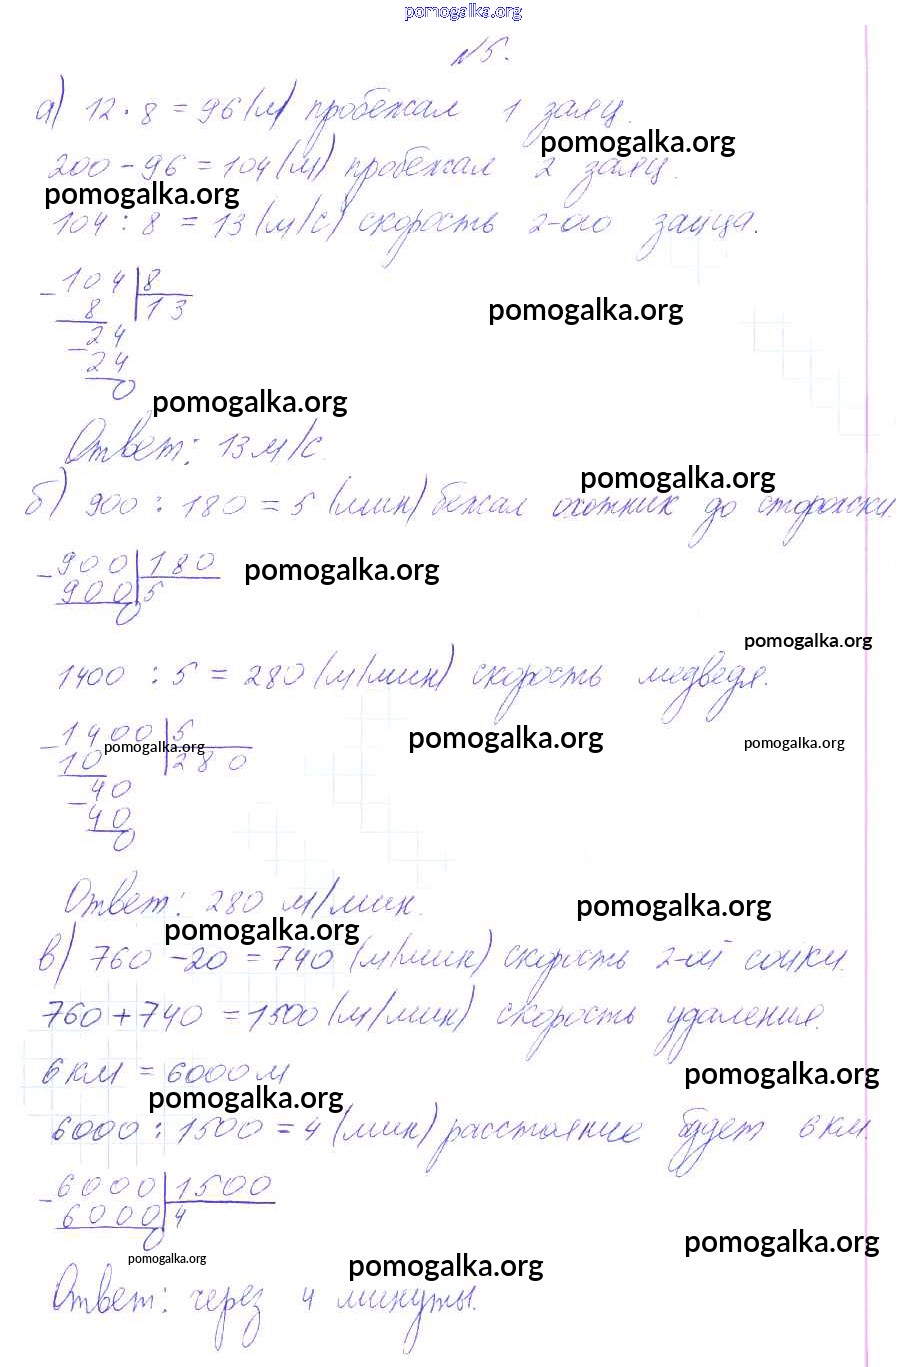 pomogalka.org
№5.
а) 12 · 8 = 96 (м) пробежал 1 заяц.
pomogalka.org
200 - 96 = 104 (м) пробежал 2 заяц.
pomogalka.org
104 : 8 = 13 (м/с) скорость 2-ого зайца.
- 104 | 8
8 | 13
pomogalka.org
- 24
24
0
pomogalka.org
Ответ: 13 м/с.
pomogalka.org
б) 900 : 180 = 5 (мин) бежал охотник до сторожки.
- 900 | 180
pomogalka.org
900 | 5
0
pomogalka.org
1400 : 5 = 280 (м/мин) скорость медведя.
- 1400 | 5
pomogalka.org
pomogalka.org
pomogalka.org
10 | 280
- 40
40
0
Ответ: 280 м/мин.
pomogalka.org
pomogalka.org
в) 760 - 20 = 740 (м/мин) скорость 2-ой сойки.
760 + 740 = 1500 (м/мин) скорость удаления.
6 км = 6000 м
pomogalka.org
pomogalka.org
6000 : 1500 = 4 (мин) расстояние будет 6 км.
- 6000 | 1500
6000 | 4
0
pomogalka.org
pomogalka.org
pomogalka.org
Ответ: через 4 минуты.